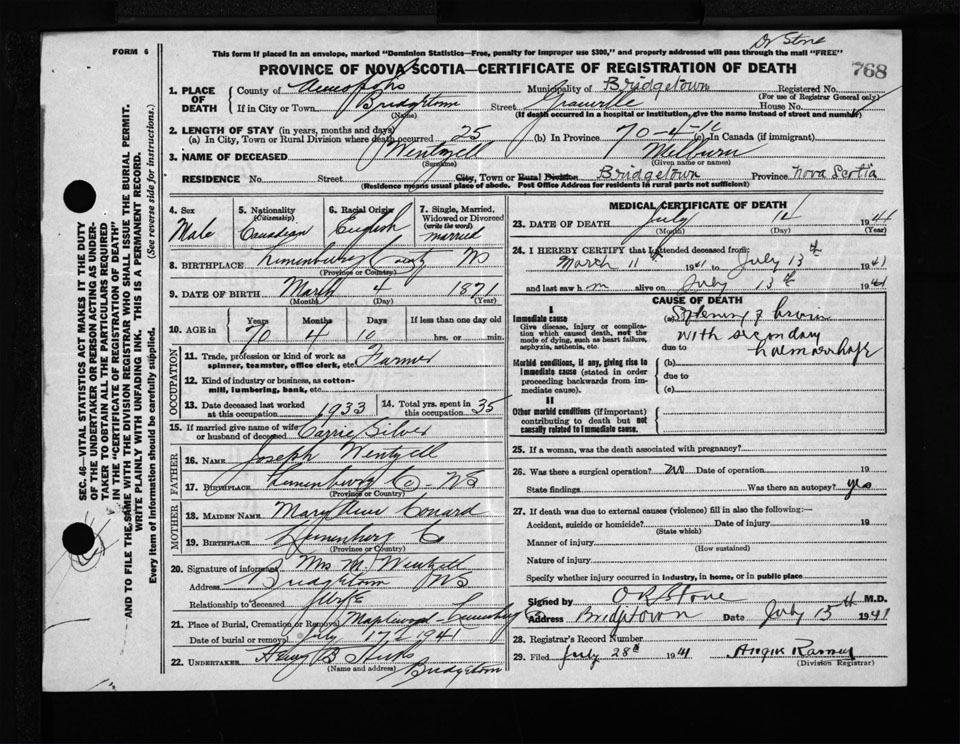 Dr Stone
FORM 6
This form if placed in an envelope, marked "Dominion Statistics—Free, penalty for improper use $300," and properly addressed will pass through the mail "FREE"
PROVINCE OF NOVA SCOTIA—CERTIFICATE OF REGISTRATION OF DEATH
768
1. PLACE OF DEATH
County of Annapolis Municipality of Bridgetown Registered No.
(For use of Registrar General only)
If in City or Town Bridgetown Street Granville House No.
(Name) (If death occurred in a hospital or institution, give the name instead of street and number)
2. LENGTH OF STAY (in years, months and days)
(a) In City, Town or Rural Division where death occurred 25 (b) In Province 70-4-10 (c) In Canada (if immigrant)
3. NAME OF DECEASED Wentzell Melburn
(Surname) (Given name or names)
RESIDENCE No. Street City, Town or Rural Division Bridgetown Province Nova Scotia
(Residence means usual place of abode. Post Office Address for residents in rural parts not sufficient)
4. Sex Male
5. Nationality (Citizenship) Canadian
6. Racial Origin English
7. Single, Married, Widowed or Divorced (write the word) married
8. BIRTHPLACE Lunenburg County NS
(Province or Country)
9. DATE OF BIRTH March 4 1871
(Month) (Day) (Year)
10. AGE in Years Months Days If less than one day old
70 4 10 hrs. or min.
OCCUPATION
11. Trade, profession or kind of work as spinner, teamster, office clerk, etc. Farmer
12. Kind of industry or business, as cotton-mill, lumbering, bank, etc.
13. Date deceased last worked at this occupation 1933
14. Total yrs. spent in this occupation 35
15. If married give name of wife or husband of deceased Carrie Silver
FATHER
16. NAME Joseph Wentzell
17. BIRTHPLACE Lunenburg Co - NS
(Province or Country)
MOTHER
18. MAIDEN NAME Mary Ann Conard
19. BIRTHPLACE Lunenberg Co
(Province or Country)
20. Signature of informant Mrs M. Wentzell
Address Bridgetown NS
Relationship to deceased Wife
21. Place of Burial, Cremation or Removal Maplewood - Lunenburg Co
Date of burial or removal July 17 1941
22. UNDERTAKER
(Name and address) Bridgetown
MEDICAL CERTIFICATE OF DEATH
23. DATE OF DEATH July 14 1941
(Month) (Day) (Year)
24. I HEREBY CERTIFY that I attended deceased from:
March 11th 1941 to July 13th 1941
and last saw h m alive on July 13th 1941
CAUSE OF DEATH
I
Immediate cause
Give disease, injury or complication which caused death, not the mode of dying, such as heart failure, asphyxia, asthenia, etc.
(a) Softening of brain
with secondary
due to haemorrhage
Morbid conditions, if any, giving rise to immediate cause (stated in order proceeding backwards from immediate cause).
(b)
due to
(c)
II
Other morbid conditions (if important) contributing to death but not causally related to immediate cause.
25. If a woman, was the death associated with pregnancy?
26. Was there a surgical operation? No Date of operation 19
State findings Was there an autopsy? yes
27. If death was due to external causes (violence) fill in also the following:—
Accident, suicide or homicide? Date of injury 19
(State which)
Manner of injury
(How sustained)
Nature of injury
Specify whether injury occurred in industry, in home, or in public place
Signed by O R Stone M.D.
Address Bridgetown Date July 15th 1941
28. Registrar's Record Number
29. Filed July 28th 1941 Angus Ramey
(Division Registrar)
SEC. 46—VITAL STATISTICS ACT MAKES IT THE DUTY
OF THE UNDERTAKER OR PERSON ACTING AS UNDER-
TAKER TO OBTAIN ALL THE PARTICULARS REQUIRED
IN THE "CERTIFICATE OF REGISTRATION OF DEATH"
AND TO FILE THE SAME WITH THE DIVISION REGISTRAR WHO SHALL ISSUE THE BURIAL PERMIT.
WRITE PLAINLY WITH UNFADING INK. THIS IS A PERMANENT RECORD.
Every item of information should be carefully supplied. (See reverse side for instructions.)